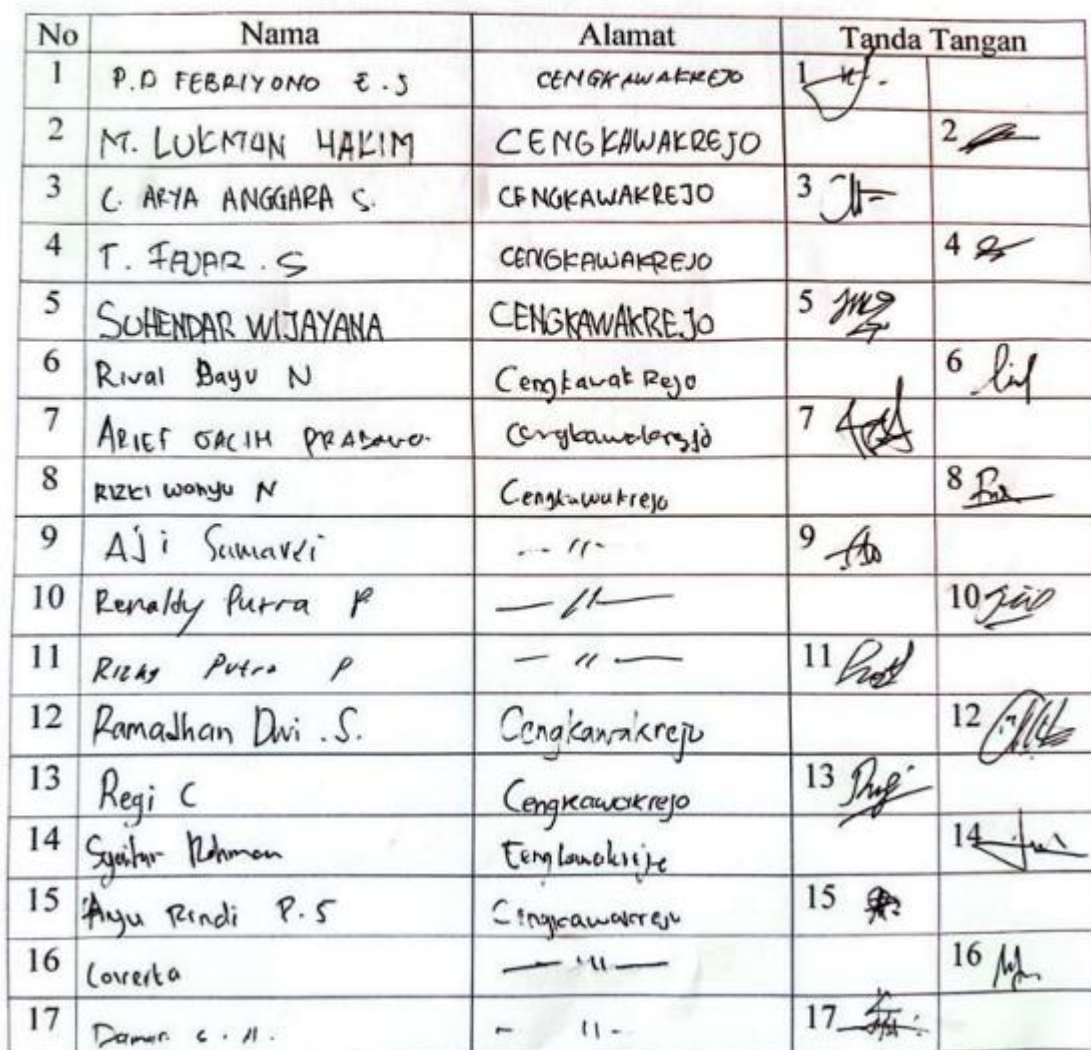 No Nama Alamat Tanda Tangan
1 P.D FEBRIYONO E.S CENGKAWAKREJO 1
2 M. LUKMAN HAKIM CENGKAWAKREJO 2
3 C. ARYA ANGGARA S. CENGKAWAKREJO 3
4 T. FAJAR . S CENGKAWAKREJO 4
5 SUHENDAR WIJAYANA CENGKAWAKREJO 5
6 Rival Bayu N Cengkawak Rejo 6
7 ARIEF GACIH PRABOWO. Cengkawakrejo 7
8 RIZKI wahyu N Cengkawakrejo 8
9 AJi Sumardi -- 11 - 9
10 Renaldy Putra P — 11 — 10
11 Rizky Putra P — 11 — 11
12 Ramadhan Dwi . S. Cengkawakrejo 12
13 Regi C Cengkawakrejo 13
14 Rohman 14
15 Ayu Rindi P. S Cengkawakrejo 15
16 — 11 — 16
17 Damar - 11 - 17